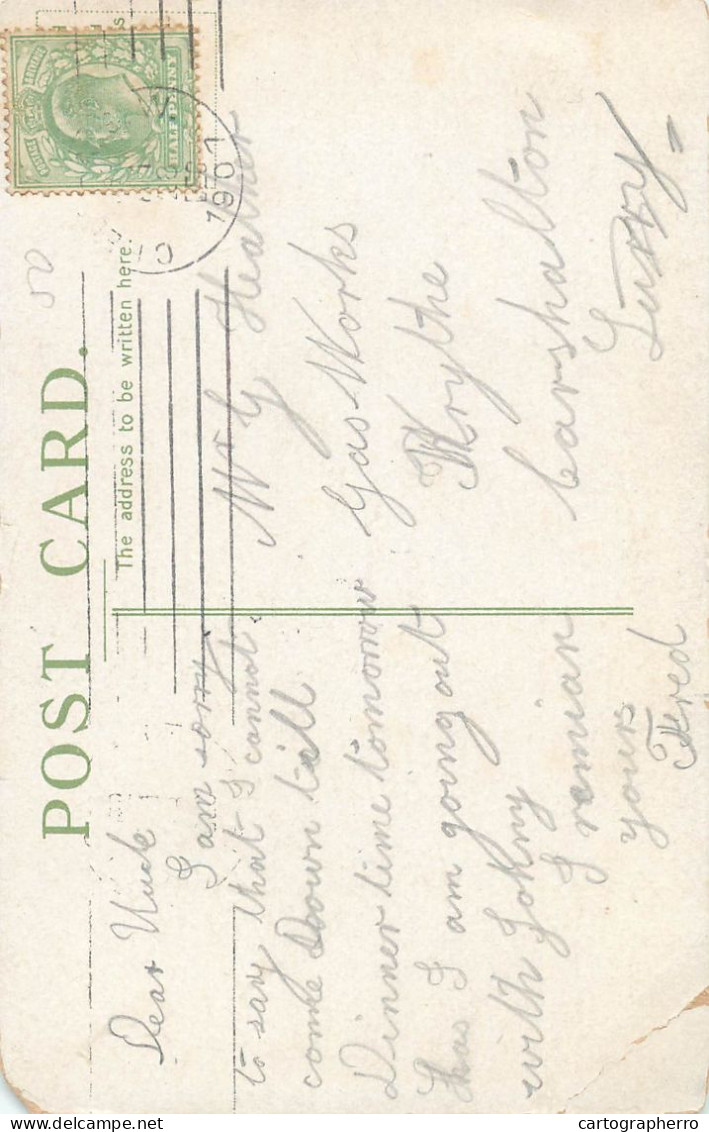 POST CARD.
The address to be written here.
HALFPENNY
Dear Uncle
I am sorry
to say that I cannot
come Down till
Dinner time tomorrow
thas I am going out
with Johny
I remian
yours
Fred
Mr G Heather
Gas-Works
Wrythe
Carshalton
Surry
50
cartographerro